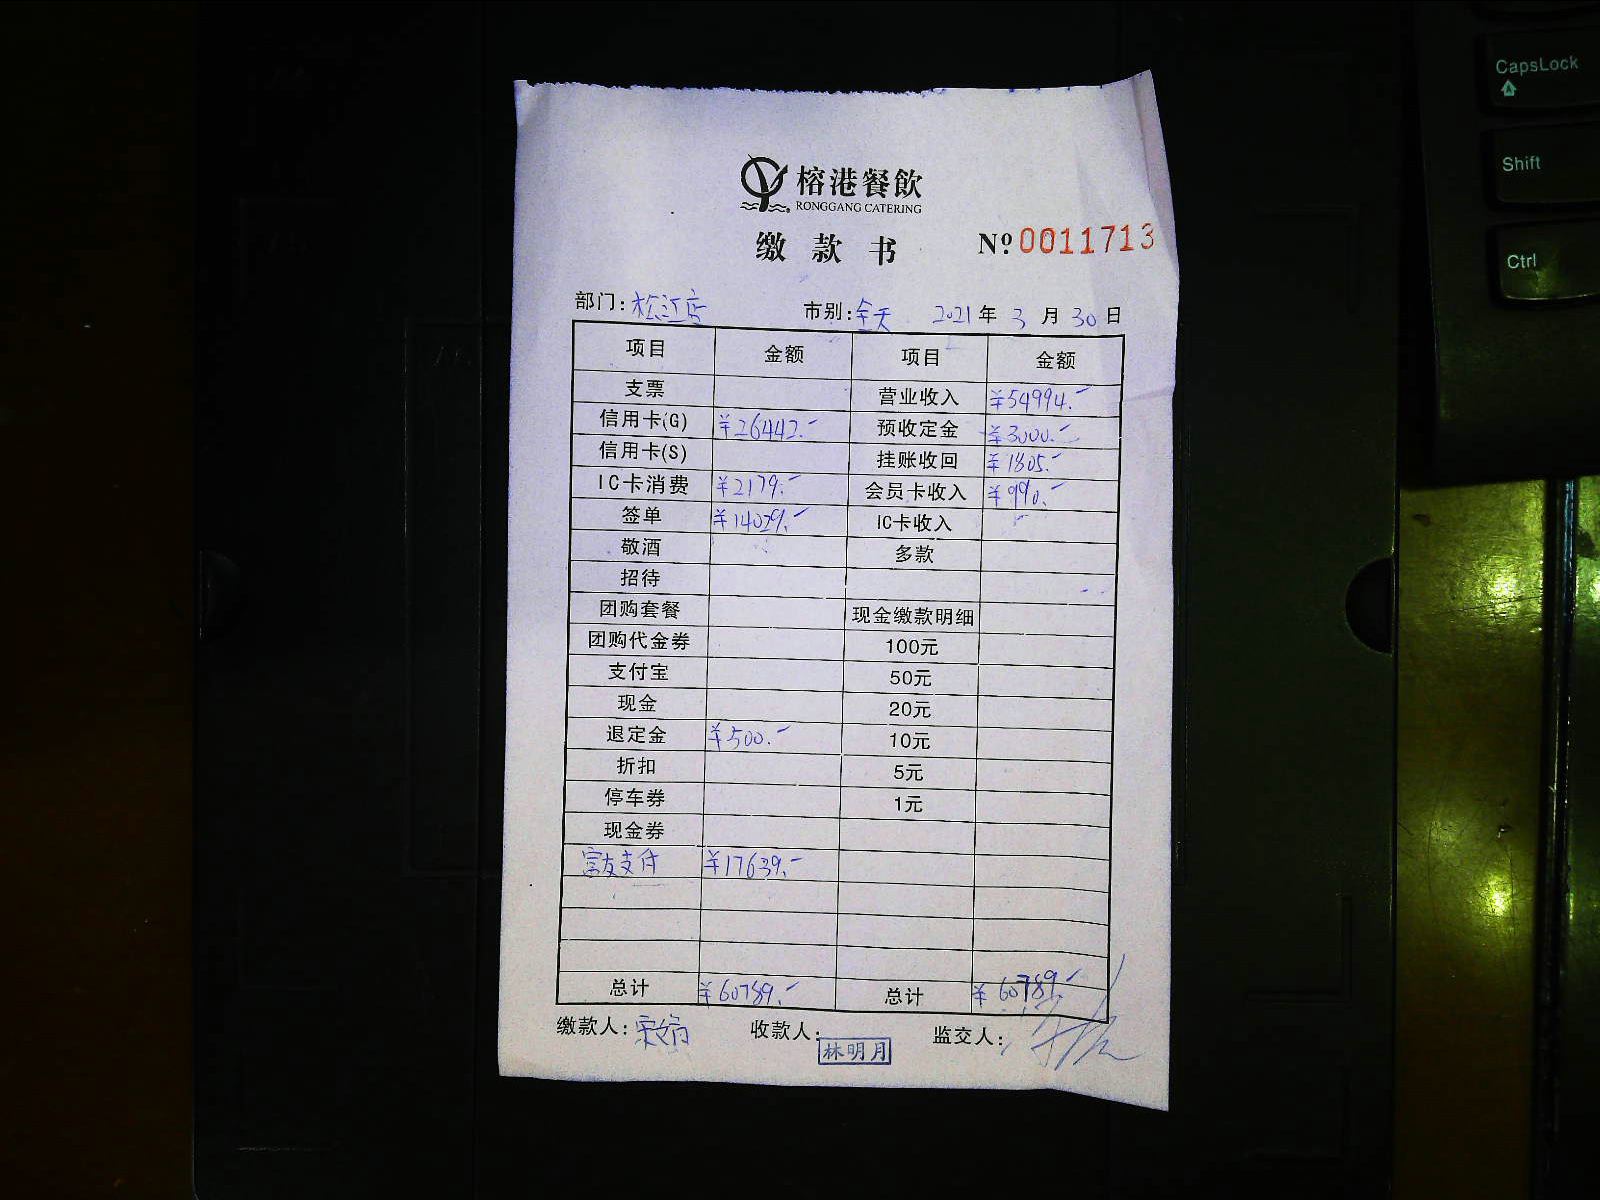 榕港餐飲
RONGGANG CATERING
缴款书 Nº 0011713
部门: 松江店 市别: 全天 2021年3月30日
项目 金额 项目 金额
支票 营业收入 ¥54994.-
信用卡(G) ¥26442.- 预收定金 ¥3000.-
信用卡(S) 挂账收回 ¥1805.-
IC卡消费 ¥2179.- 会员卡收入 ¥990.-
签单 ¥14029.- IC卡收入
敬酒 多款
招待
团购套餐 现金缴款明细
团购代金券 100元
支付宝 50元
现金 20元
退定金 ¥500.- 10元
折扣 5元
停车券 1元
现金券
富友支付 ¥17639.-
总计 ¥60789.- 总计 ¥60789.-
缴款人: 收款人: 林明月 监交人:
CapsLock
Shift
Ctrl